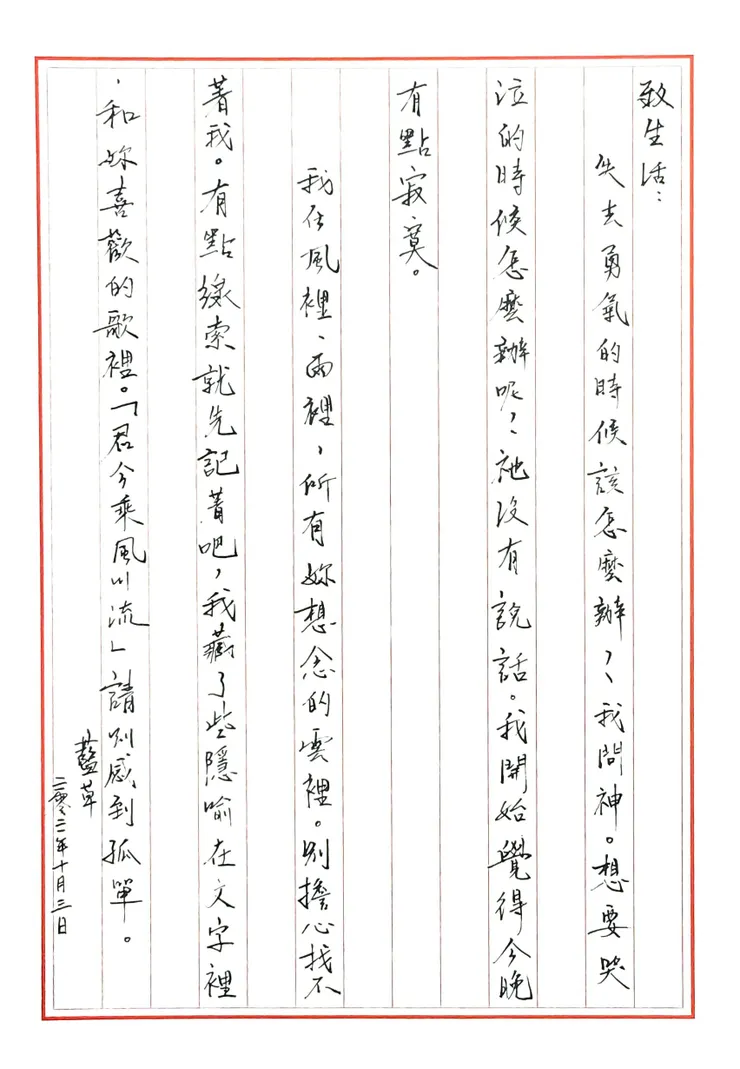 致生活：
失去勇氣的時候該怎麼辦？我問神。想要哭
泣的時候怎麼辦呢？祂沒有說話。我開始覺得今晚
有點寂寞。
我在風裡、雨裡，所有妳想念的雲裡。別擔心找不
著我。有點線索就先記著吧，我藏了些隱喻在文字裡
，和妳喜歡的歌裡。「君兮乘風以流」請別感到孤單。
藍草
二零二二年十月三日